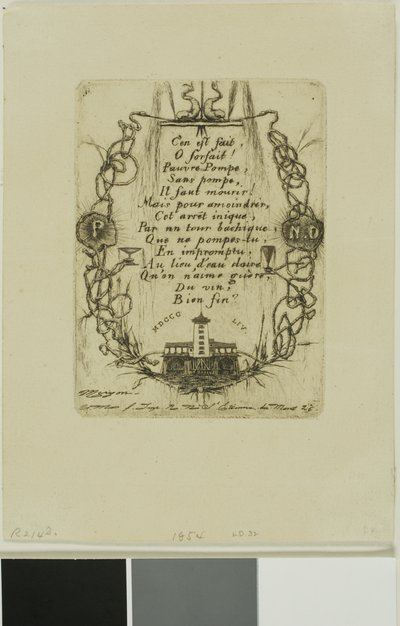 C'en est fait,
O forfait!
Pauvre Pompe,
Sans pompe,
Il faut mourir!
Mais pour amoindrir,
Cet arrêt inique,
Par un tour bachique,
Que ne pompes-tu,
En impromptu,
Au lieu d'eau claire
Qu'on n'aime guère,
Du vin?
Bien fin?
P.
N.D
MDCCC LIV.
Meryon
R 214
1854
LD.92